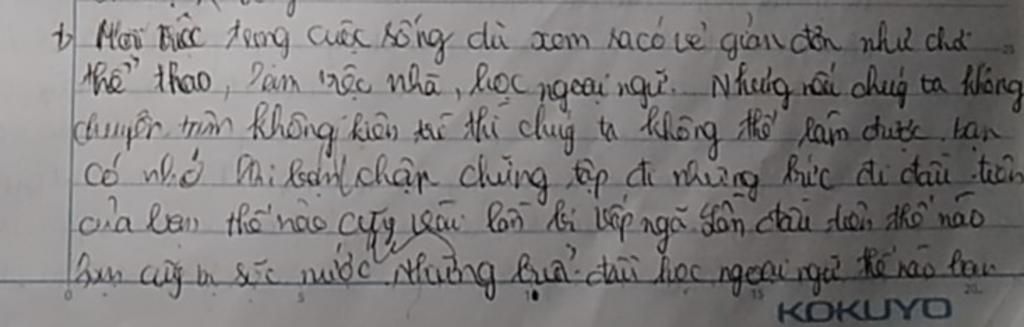 b) Mọi việc trong cuộc sống dù xem ra có vẻ giản đơn như chơi
thể thao, làm việc nhà, học ngoại ngữ. Nhưng nếu chúng ta không
chuyên tâm không kiên trì thì chúng ta không thể làm được. bạn
có nhớ khi chập chững tập đi những bước đi đầu tiên
của bạn thế nào cũng vài lần bị vấp ngã lần đầu tiên thế nào
bạn cũng bị sặc nước Những buổi đầu học ngoại ngữ thế nào bạn
0 5 10 15 20
KOKUYO